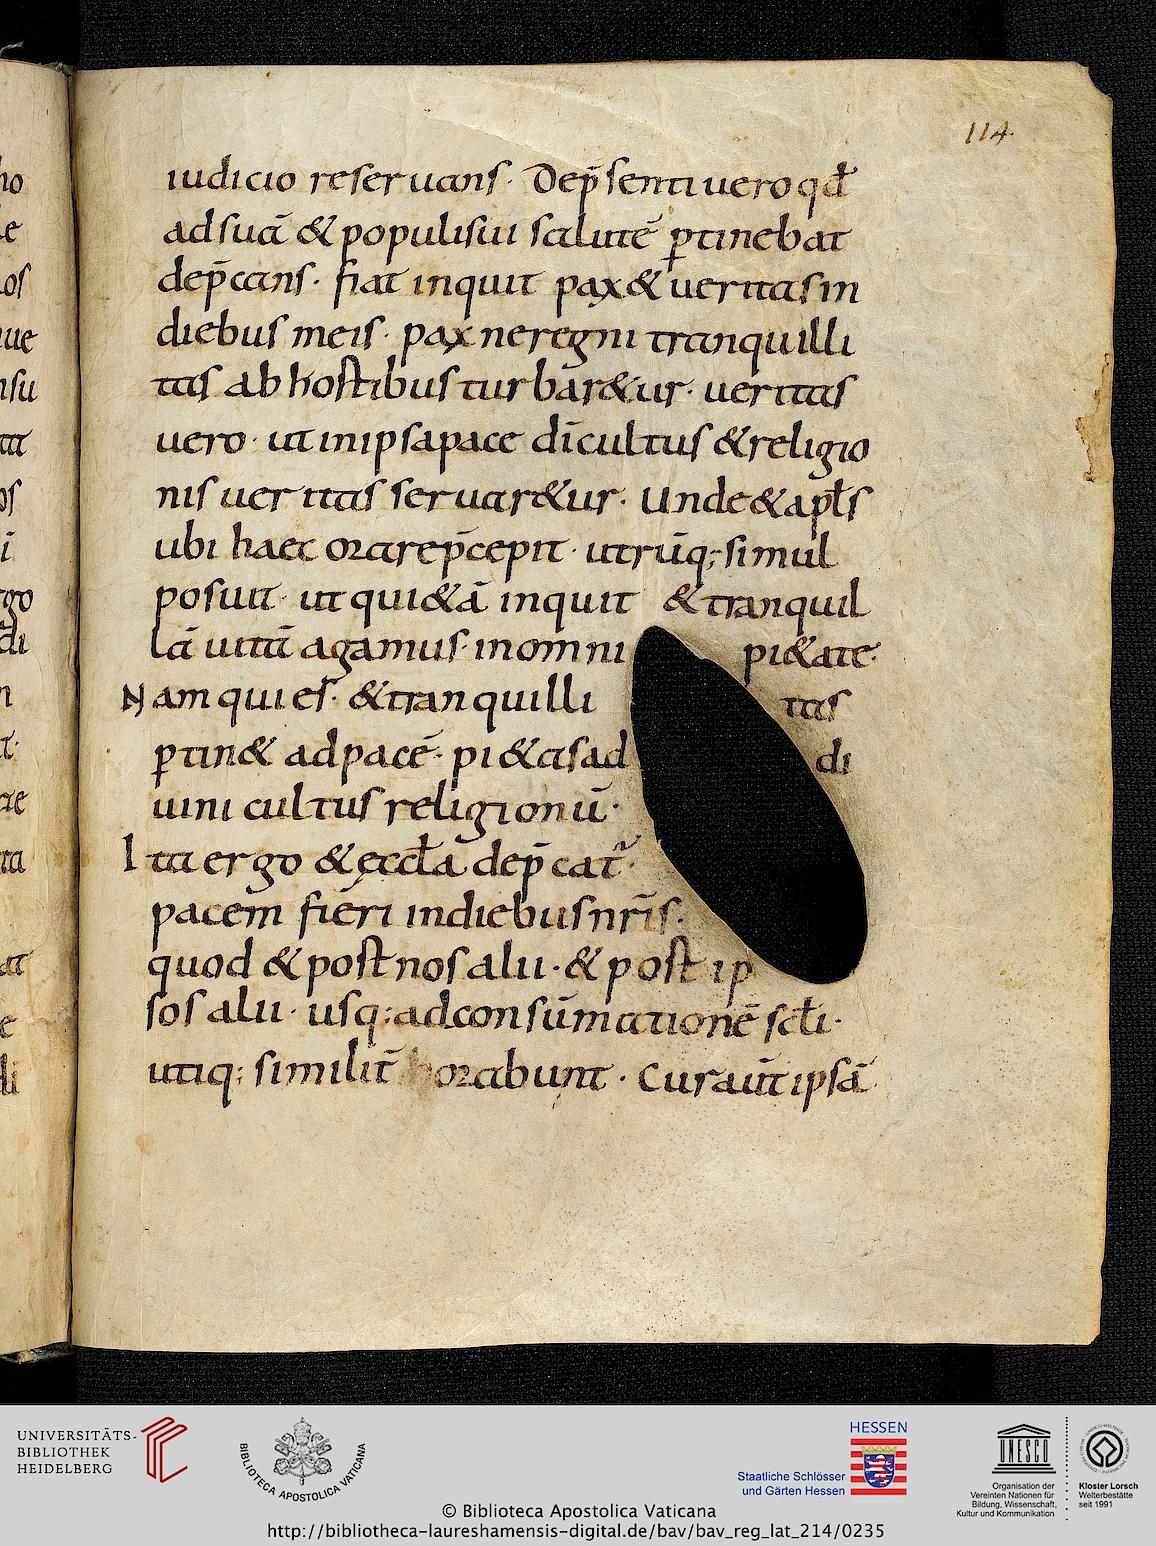 114
iudicio reseruans· Dep̄senti uero qđ
ad suā & populi sui salutē ꝑtinebat
dep̄cans· fiat inquit pax & ueritas in
diebus meis· pax ne regni tranquilli
tas ab hostibus turbar&ur· ueritas
uero· ut in ipsa pace dīcultus & religio
nis ueritas seruar&ur· Unde & aplˉs
ubi haec orare p̄cepit· utrūq; simul
posuit· ut qui&ā inquit & tranquil
lā uitā agamus· in omni pi&ate·
Nam quies· & tranquilli tas
ꝑtin& ad pacē· pi&as ad di
uini cultus religionū·
Ita ergo & ęccłā dep̄cat̃·
pacem fieri in diebus nr̄is·
quod & post nos alii· & post ip
sos alii· usq; ad consūmationē scłi·
utiq; similit̄ orabunt· Curaūt ipsā
UNIVERSITÄTS-
BIBLIOTHEK
HEIDELBERG
BIBLIOTECA APOSTOLICA VATICANA
HESSEN
Staatliche Schlösser
und Gärten Hessen
UNESCO
Organisation der
Vereinten Nationen für
Bildung, Wissenschaft,
Kultur und Kommunikation
Kloster Lorsch
Welterbestätte
seit 1991
© Biblioteca Apostolica Vaticana
http://bibliotheca-laureshamensis-digital.de/bav/bav_reg_lat_214/0235